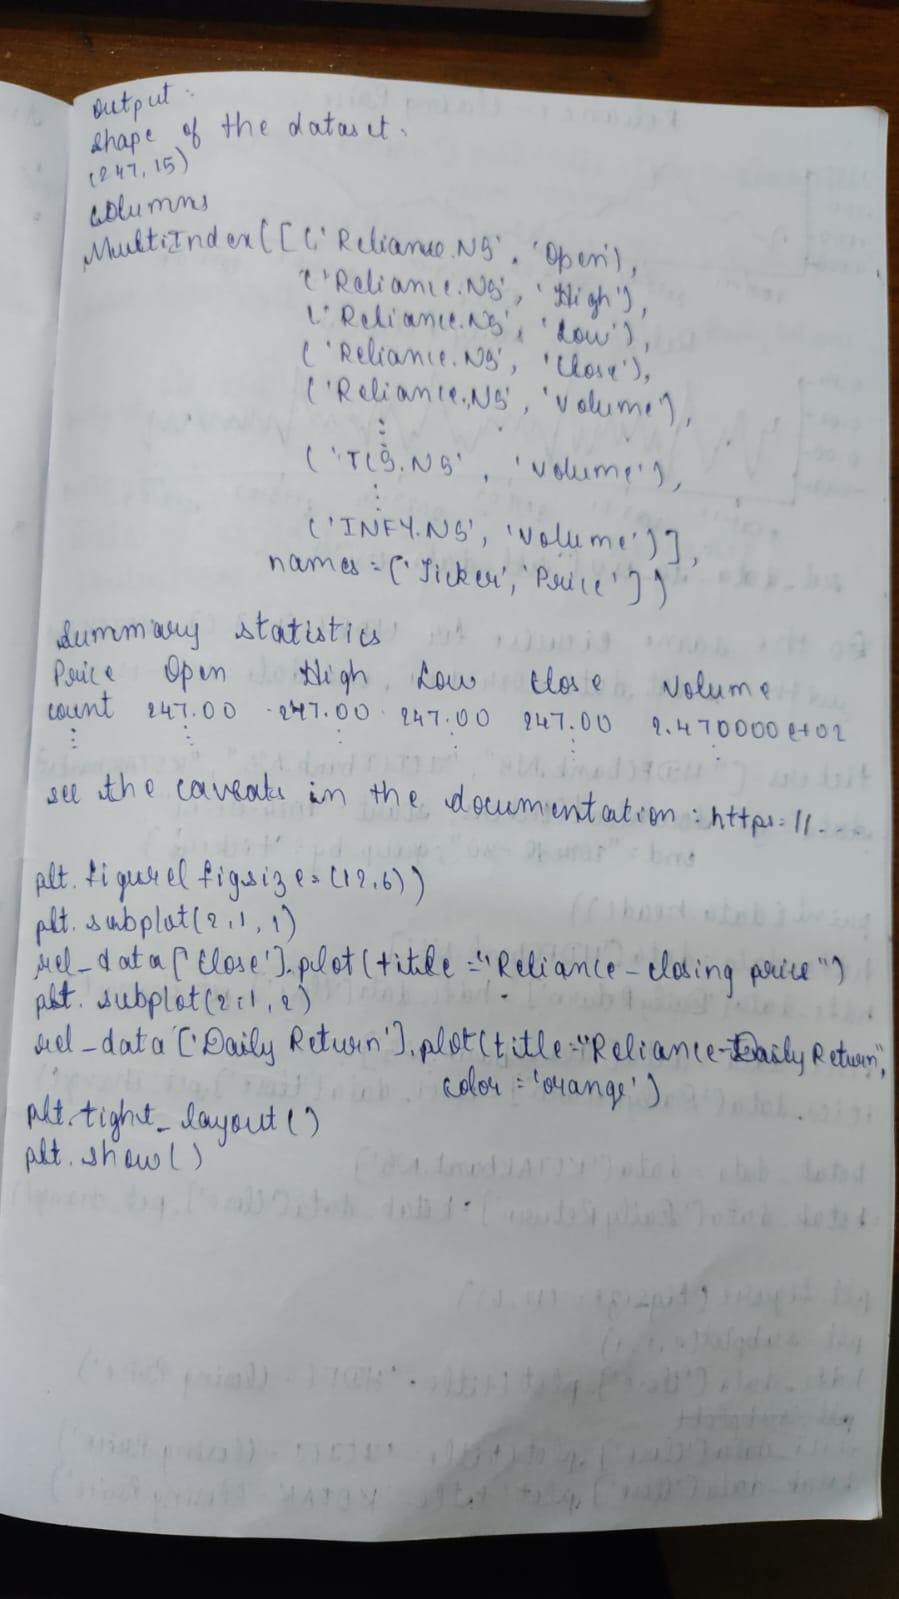 Output:
Shape of the dataset:
(247, 15)
columns
MultiIndex([('Reliance.NS', 'Open'),
('Reliance.NS', 'High'),
('Reliance.NS', 'Low'),
('Reliance.NS', 'Close'),
('Reliance.NS', 'Volume'),
⋮
('TCS.NS', 'Volume'),
⋮
('INFY.NS', 'Volume')],
names=['Ticker', 'Price'])
Summary statistics
Price Open High Low Close Volume
count 247.00 247.00 247.00 247.00 2.470000e+02
⋮ ⋮ ⋮ ⋮ ⋮ ⋮
see the caveats in the documentation: https://...
plt.figure(figsize=(12,6))
plt.subplot(2,1,1)
rel_data['Close'].plot(title="Reliance-closing price")
plt.subplot(2,1,2)
rel_data['Daily Return'].plot(title="Reliance-Daily Return",
color='orange')
plt.tight_layout()
plt.show()